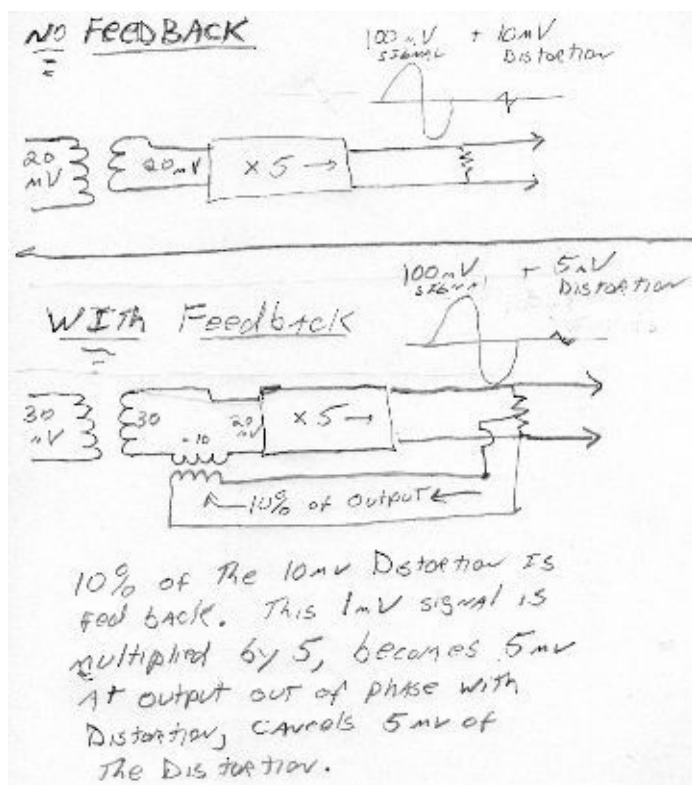 NO FEEDBACK
100mV + 10mV
SIGNAL Distortion
20 mV
20mV
× 5 →
100mV + 5mV
SIGNAL Distortion
WITH Feedback
30 mV
30
-10
20 mV
× 5 →
10% of output
10% of The 10mv Distortion Is
Fed bAck. This 1mV sigNAl is
multiplied by 5, becomes 5mv
At output out of phase with
Distortion, cAncels 5mv of
The Distortion.